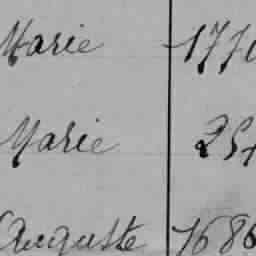 Marie 1770
Marie 254
Auguste 1686